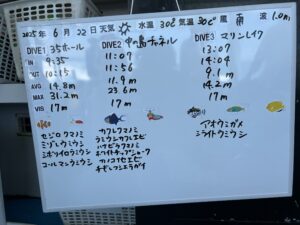 2025年 6月 22日 天気 水温 30℃ 気温 30℃ 風 南 波 1.0m
DIVE1 35ホール
IN 9:35
OUT 10:15
AVG 14.8m
MAX 31.2m
VIS 17m
セジロクマノミ
ミゾレウミウシ
シボリイロウミウシ
コールマンウミウシ
DIVE2 中の島チャネル
11:07
11:56
11.9m
23.6m
17m
カクレクマノミ
ハナビラクマノミ
ホワイトチップシャーク
DIVE3 マリンレイク
13:07
14:04
9.1m
14.2m
17m
アオウミガメ
シライトウミウシ